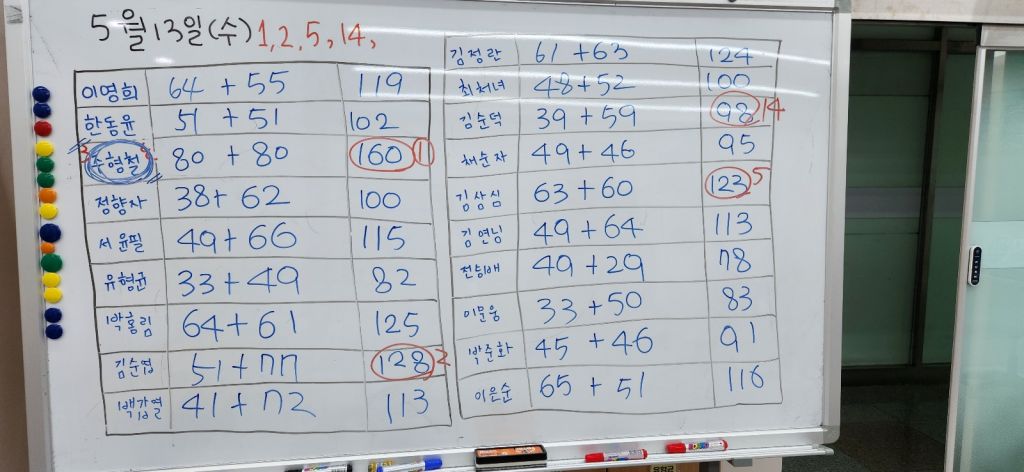 5월13일(수) 1, 2, 5, 14,
이영희 64 + 55 119
한동윤 51 + 51 102
주형철 80 + 80 160 1
정향자 38 + 62 100
서윤필 49 + 66 115
유형균 33 + 49 82
박홍림 64 + 61 125
김순엽 51 + 77 128 2
백갑열 41 + 72 113
김정란 61 + 63 124
최처녀 48 + 52 100
김순덕 39 + 59 98 14
채순자 49 + 46 95
김삼심 63 + 60 123 5
김연님 49 + 64 113
전승배 49 + 29 78
이문웅 33 + 50 83
박준화 45 + 46 91
이은순 65 + 51 116